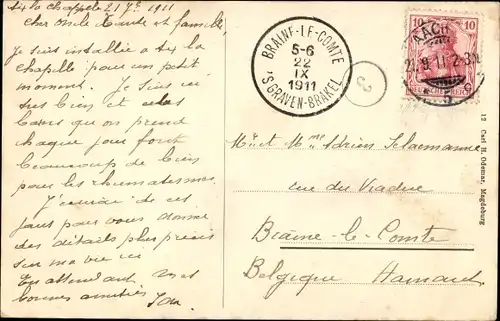 Aix la Chapelle 21 7re 1911
Cher Oncle Tante et famille,
Je suis installée à Aix la
chapelle pour un petit
moment. Je suis ici
très bien et
bains que on prend
chaque jour font
beaucoup de bien
pour les rhumatismes.
de ces
jours pour vous donner
des détails plus précis
sur ma vie ici
En attendant
bonnes amitiés Ida
BRAINE-LE-COMTE
5-6
22
IX
1911
'S GRAVEN-BRAKEL
3
10 10
DEUTSCHES REICH
AACHEN
21.9.11.2-3N.
5
Mr et Mme Adrien
rue du Viaduc
Braine-le-Comte
Belgique Hainaut
12 Carl H. Odemar, Magdeburg